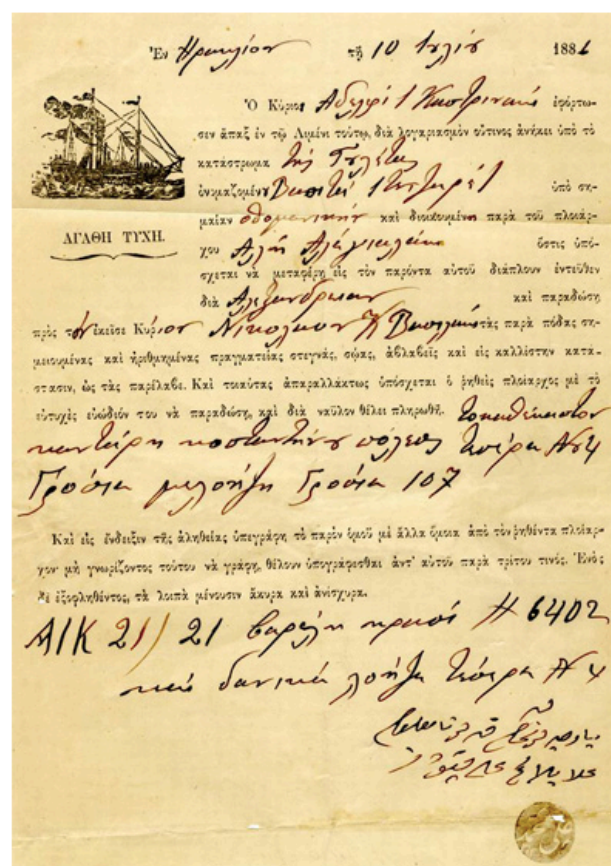 Ἐν Ἡρακλίον τῇ 10 Ιυλίυ 188
Ὁ Κύριος Αδελφὶ Ι Καστρινακὶ ἐφόρτω-
σεν ἅπαξ ἐν τῷ Λιμένι τούτῳ, διὰ λογαριασμὸν οὕτινος ἀνήκει ὑπὸ τὸ
κατάστρωμα τῆς Γυλέτας
ὀνομαζομένην ὑπὸ ση-
μαίαν οθομανικὴν καὶ διοικουμένην παρὰ τοῦ πλοιάρ-
χου Αλῆ ὅστις ὑπό-
ΑΓΑΘΗ ΤΥΧΗ.
σχεται νὰ μεταφέρῃ εἰς τὸν παρόντα αὐτοῦ διάπλουν ἐντεῦθεν
διὰ Αλεξανδρειαν καὶ παραδώσῃ
πρὸς τὸν ἐκεῖσε Κύριον Νικολαον Βασιλακι τὰς παρὰ πόδας ση-
μειουμένας καὶ ἠριθμημένας πραγματείας στεγνάς, σώας, ἀβλαβεῖς καὶ εἰς καλλίστην κατά-
στασιν, ὡς τὰς παρέλαβε. Καὶ τοιαύτας ἀπαραλλάκτως ὑπόσχεται ὁ ῥηθεὶς πλοίαρχος μὲ τὸ
εὐτυχὲς εὐώδιόν του νὰ παραδώσῃ, καὶ διὰ ναῦλον θέλει πληρωθῆ. τὸ καθέκαστον
καντάρη κοσταντήνυ πόλεος τεσέρα Ν 4
Γρόσια Γρόσια 107
Καὶ εἰς ἔνδειξιν τῆς ἀληθείας ὑπεγράφη τὸ παρὸν ὁμοῦ μὲ ἄλλα ὅμοια ἀπὸ τὸν ῥηθέντα πλοίαρ-
χον· μὴ γνωρίζοντος τούτου νὰ γράφῃ, θέλουν ὑπογράφεσθαι ἀντ' αὐτοῦ παρὰ τρίτου τινός. Ἑνὸς
δὲ ἐξοφληθέντος, τὰ λοιπὰ μένουσιν ἄκυρα καὶ ἀνίσχυρα.
ΑΙΚ 21// 21 βαρέλη κρασὶ Ν 6402
καὶ τέσερα Ν 4